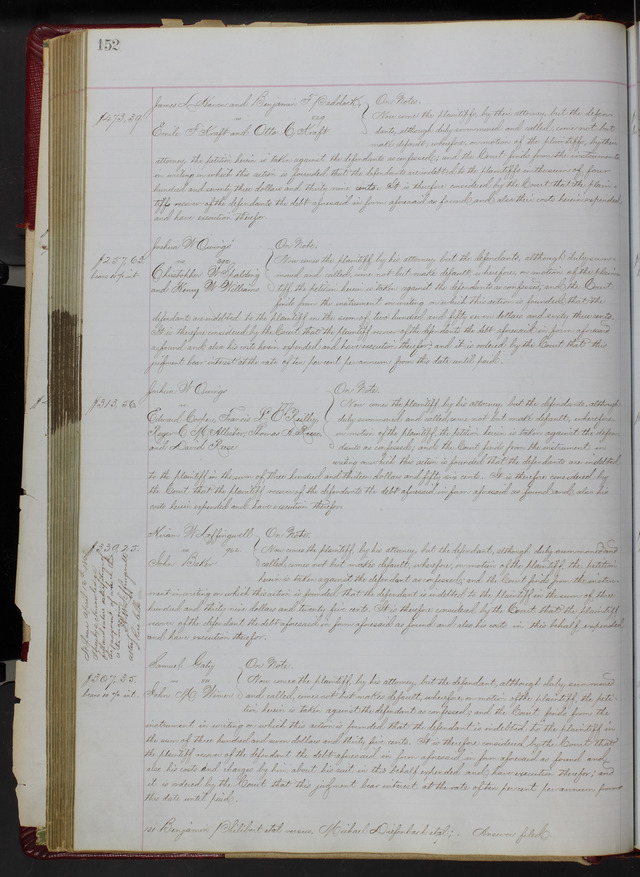 152
James L. and Benjamin F.
vs
Emile F Kraft and Otto C. Kraft
On Note.
$473,39
Now come the plaintiffs, by their attorney, but the defen-
dants, although duly summoned and called, come not, but
make default; wherefore, on motion of the plaintiffs, by their
attorney, the petition herein is taken against the defendants as confessed; and the Court finds from the instrument
in writing on which this action is founded, that the defendants are indebted to the plaintiffs in the sum of four
hundred and seventy three dollars and thirty nine cents. It is therefore considered by the Court that the plain-
tiffs recover of the defendants the debt aforesaid in form aforesaid as found, and also their costs herein expended,
and have execution therefor.
Joshua W Owings
vs
Christopher W Spalding
and Henry W Williams
On Note.
$257,63
bears 10 % int.
Now comes the plaintiff, by his attorney, but the defendants, although duly sum-
moned and called, come not but make default; wherefore, on motion of the plain-
tiff, the petition herein is taken against the defendants as confessed, and the Court
finds from the instrument in writing on which this action is founded that the
defendants are indebted to the plaintiff in the sum of two hundred and fifty seven dollars and sixty three cents.
It is therefore considered by the Court that the plaintiff recover of the defendants the debt aforesaid in form aforesaid
as found and also his costs herein expended and have execution therefor; and it is ordered by the Court that this
judgment bear interest at the rate of ten per cent per annum from this date until paid.
Joshua W Owings
vs
Edward Francis
Roger C McAllister, Thomas
and David
On Note.
$313,56.
Now comes the plaintiff, by his attorney, but the defendants, although
duly summoned and called, come not but make default; wherefore
on motion of the plaintiff, the petition herein is taken against the defen-
dants as confessed; and the Court finds from the instrument in
writing on which this action is founded that the defendants are indebted
to the plaintiff in the sum of three hundred and thirteen dollars and fifty six cents. It is therefore considered by
the Court that the plaintiff recover of the defendants the debt aforesaid in form aforesaid as found and also his
costs herein expended and have execution therefor.
Hiram W Leffingwell
vs
John Baker
On Note.
$339,25.
Now comes the plaintiff, by his attorney, but the defendant, although duly summoned and
called, comes not but makes default; wherefore, on motion of the plaintiff, the petition
herein is taken against the defendant as confessed; and the Court finds from the instru-
ment in writing on which this action is founded that the defendant is indebted to the plaintiff in the sum of three
hundred and thirty nine dollars and twenty five cents. It is therefore considered by the Court that the plaintiff
recover of the defendant the debt aforesaid in form aforesaid as found and also his costs in this behalf expended
and have execution therefor.
Samuel Gaty
vs
John M Wimer
On Note.
$307,35.
bears 10 % int.
Now comes the plaintiff, by his attorney, but the defendant, although duly summoned
and called, comes not but makes default; wherefore on motion of the plaintiff, the peti-
tion herein is taken against the defendant as confessed; and the Court finds from the
instrument in writing on which this action is founded that the defendant is indebted to the plaintiff in
the sum of three hundred and seven dollars and thirty five cents. It is therefore considered by the Court that
the plaintiff recover of the defendant the debt aforesaid in form aforesaid as found and
also his costs and charges by him about his suit in this behalf expended and have execution therefor; and
it is ordered by the Court that this judgment bear interest at the rate of ten per cent per annum from
this date until paid.
Benjamin et al versus, Michael Diefenbach et al; Answer filed.